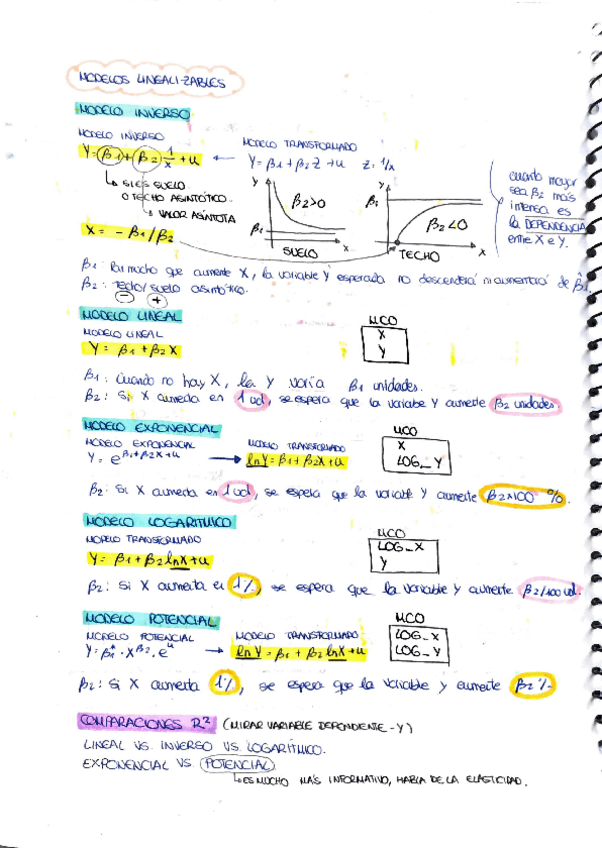 MODELOS LINEALIZABLES
MODELO INVERSO
MODELO INVERSO
Y = β1 + β2 1/x + u
MODELO TRANSFORMADO
Y = β1 + β2 Z + u Z = 1/x
SI ES SUELO
O TECHO ASINTÓTICO.
VALOR ASÍNTOTA
X = - β1/β2
Y
β2>0
β1
X
SUELO
Y
β1
β2<0
X
TECHO
cuanto mayor
sea β2 más
intensa es
la DEPENDENCIA
entre X e Y.
β1: Por mucho que aumente X, la variable Y esperada no descenderá ni aumentará de β1
β2: Techo/suelo asintótico.
- +
MODELO LINEAL
MODELO LINEAL
Y = β1 + β2 X
MCO
X
Y
β1: Cuando no hay X, la Y varía β1 unidades.
β2: Si X aumenta en 1 ud, se espera que la variable Y aumente β2 unidades.
MODELO EXPONENCIAL
MODELO EXPONENCIAL
Y = e^β1+β2X+u
MODELO TRANSFORMADO
lnY = β1 + β2X + u
MCO
X
LOG_Y
β2: Si X aumenta en 1 ud, se espera que la variable Y aumente β2×100 %.
MODELO LOGARITMICO
MODELO TRANSFORMADO
Y = β1 + β2 lnX + u
MCO
LOG_X
Y
β2: Si X aumenta en 1%, se espera que la variable Y aumente β2/100 ud.
MODELO POTENCIAL
MODELO POTENCIAL
Y = β1* · X^β2 · e^u
MODELO TRANSFORMADO
lnY = β1 + β2 lnX + u
MCO
LOG_X
LOG_Y
β2: Si X aumenta 1%, se espera que la variable Y aumente β2 %
COMPARACIONES R² (MIRAR VARIABLE DEPENDIENTE - Y)
LINEAL VS. INVERSO VS. LOGARÍTMICO.
EXPONENCIAL VS. POTENCIAL
ES MUCHO MÁS INFORMATIVO, HABLA DE LA ELASTICIDAD.